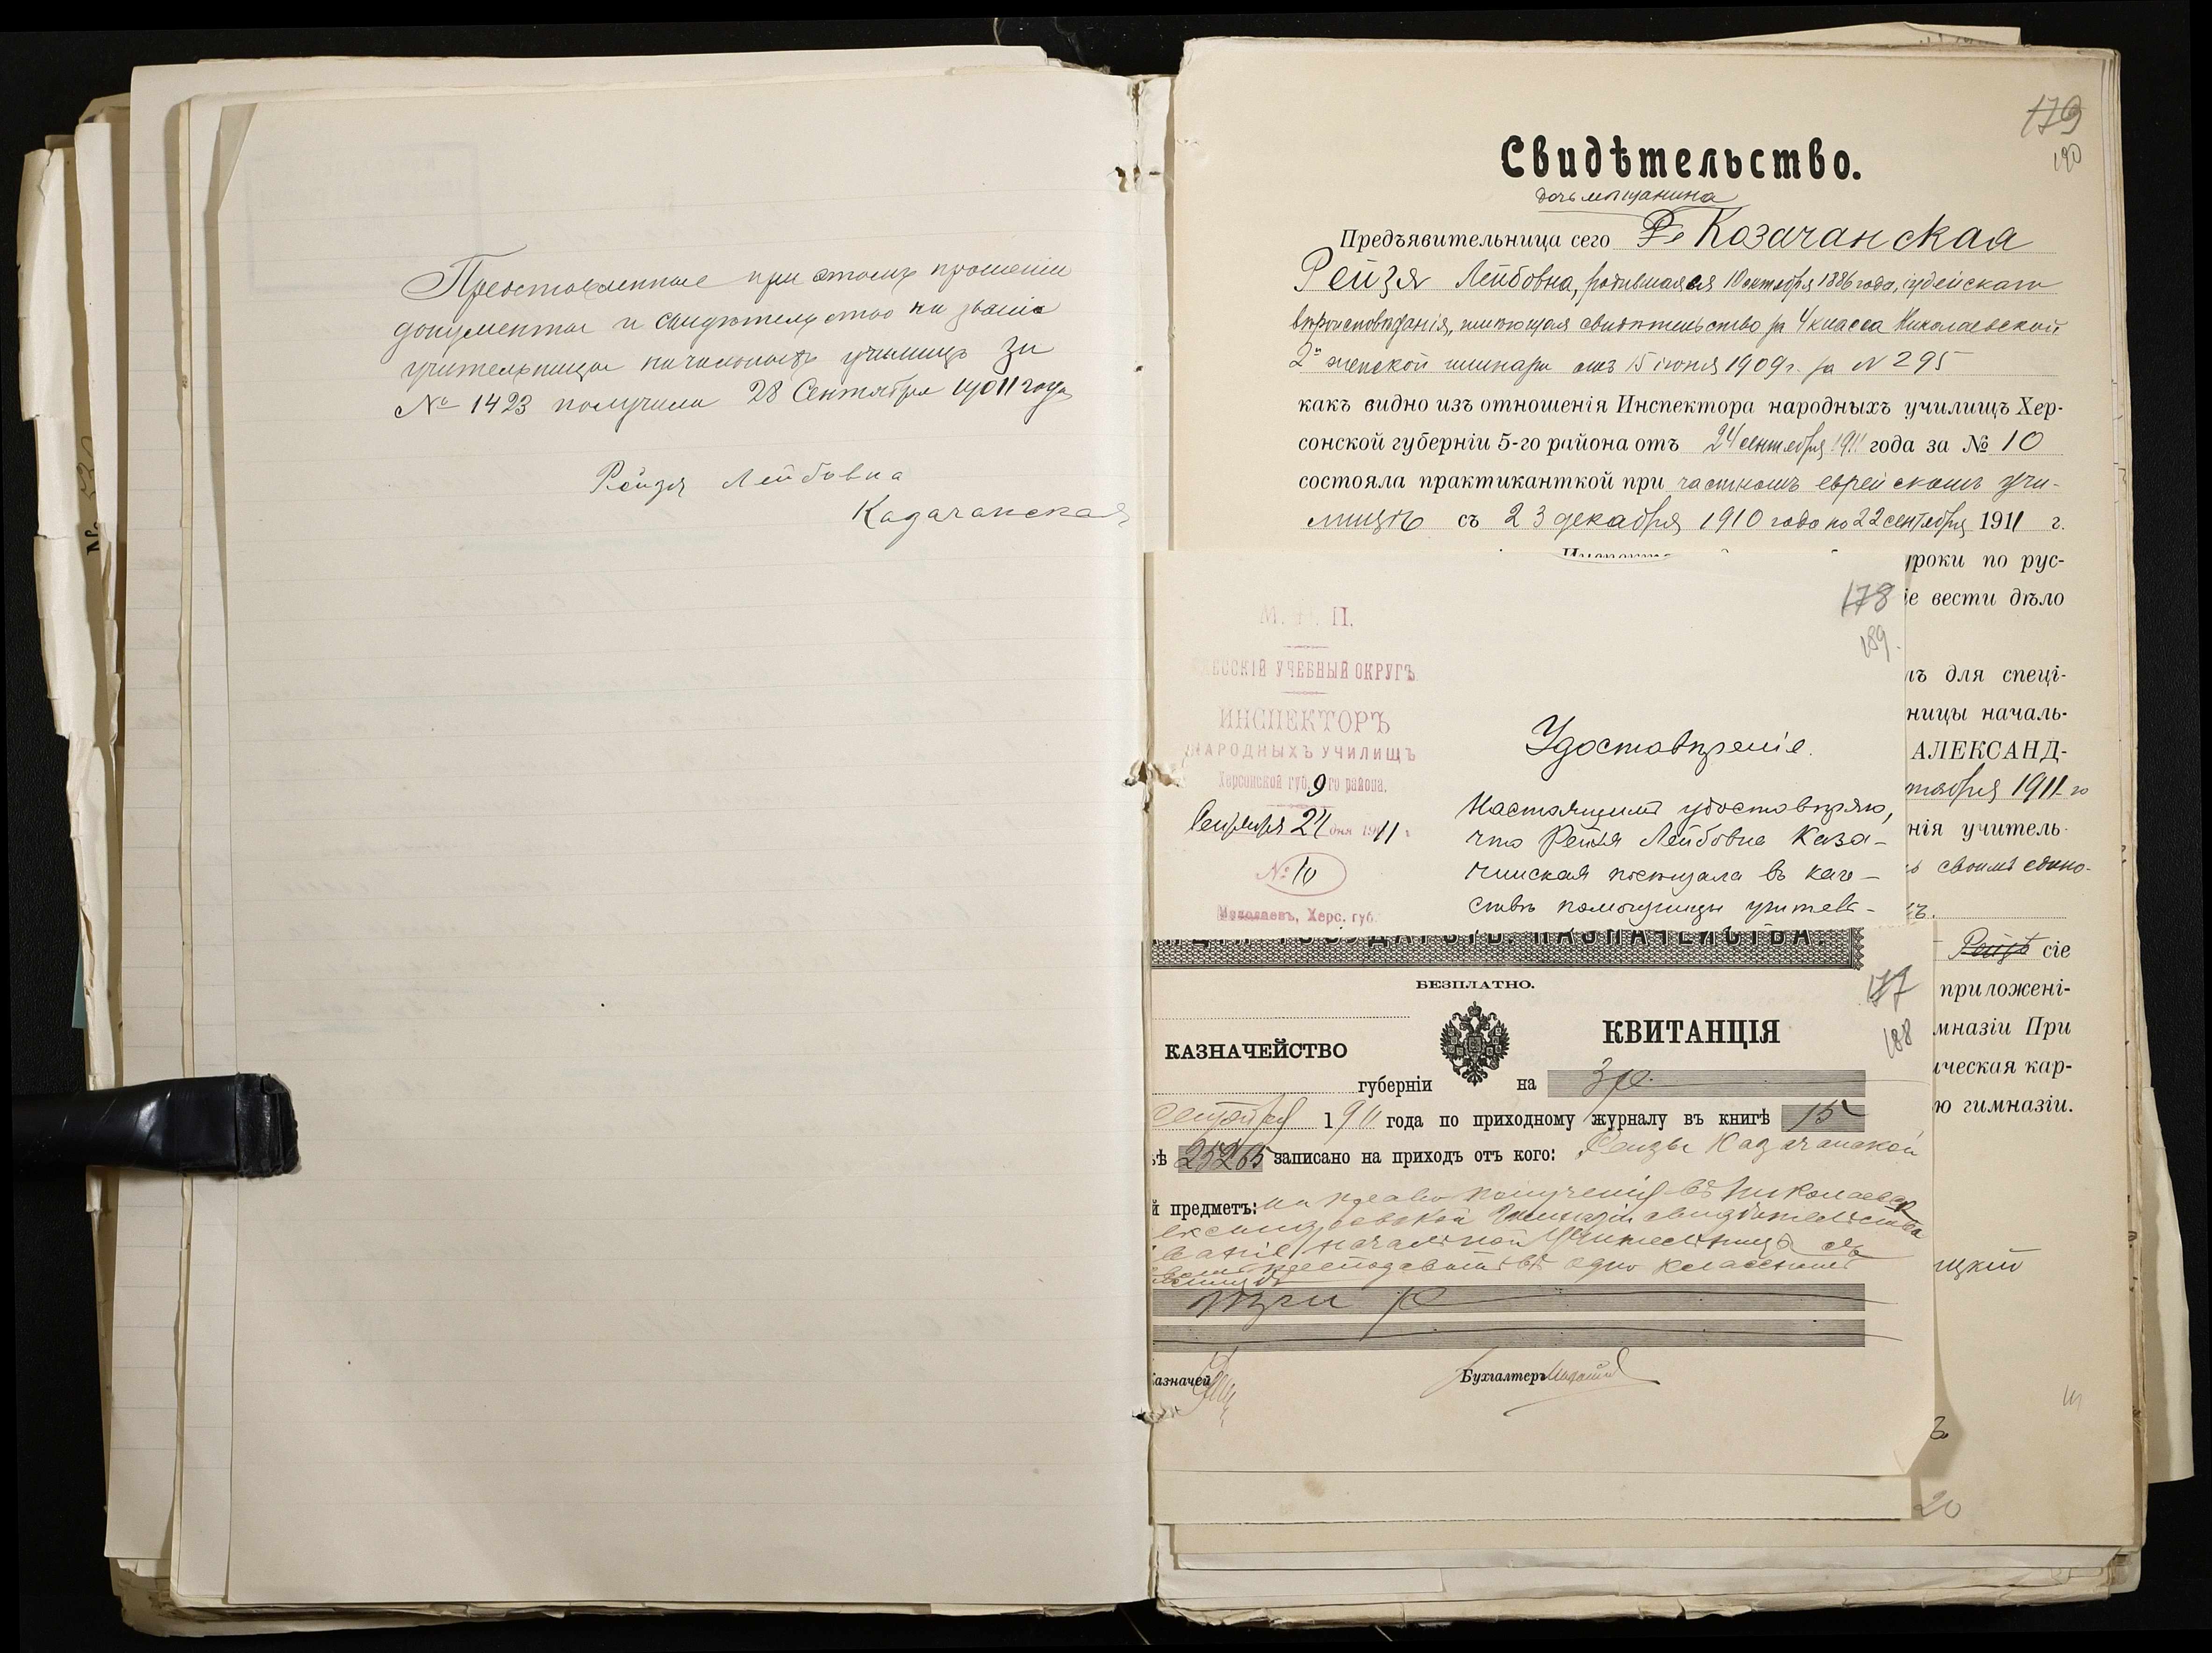 Предоставленные при этомъ прошеніи
документы и свидѣтельство на званіе
учительницы начальныхъ училищъ за
№ 1423 получила 28 Сентября 19011 года
Рейзя Лейбовна
Казачанская
179
190
Свидѣтельство.
дочь мѣщанина
Предъявительница сего Козачанская
Рейзя Лейбовна, родившаяся 10 октября 1886 года, іудейскаго
вѣроисповѣданія, имѣющая свидѣтельство за 4 класса Николаевской
2й женской гимназіи отъ 15 іюня 1909 г. за № 295
какъ видно изъ отношенія Инспектора народныхъ училищъ Хер-
сонской губерніи 5-го района отъ 24 сентября 1911 года за № 10
состояла практиканткой при частномъ еврейскомъ учи-
лищѣ съ 23 декабря 1910 года по 22 сентября 1911 г.
уроки по рус-
іе вести дѣло
для спеці-
ницы началь-
АЛЕКСАНД-
тября 1911 го
нія учитель-
своимъ едино-
Рейзѣ сіе
приложені-
мназіи При
ическая кар-
ю гимназіи.
ицкій
20
178
189.
М. Н. П.
ЕССКІЙ УЧЕБНЫЙ ОКРУГЪ
ИНСПЕКТОРЪ
НАРОДНЫХЪ УЧИЛИЩЪ
Херсонской губ. 9го района.
Сентября 24 дня 1911 г.
№ 10
Николаевъ, Херс. губ.
Удостовѣреніе.
Настоящимъ удостовѣряю,
что Рейзя Лейбовна Каза-
чинская посѣщала въ каче-
ствѣ помощницы учитель-
ГОСУДАРСТВ. КАЗНАЧЕЙСТВА.
БЕЗПЛАТНО.
177
188
КАЗНАЧЕЙСТВО
КВИТАНЦІЯ
губерніи
на 3 р.
Сентября 1911 года по приходному журналу въ книгѣ 15
25265 записано на приходъ отъ кого: Рейзы Казачанской
й предметъ: на право полученія въ Николаевск
ександровской Гимназіи свидѣтельства
званіе начальной Учительницы съ
преподавать въ одно классномъ
Три р
азначей
Бухгалтеръ